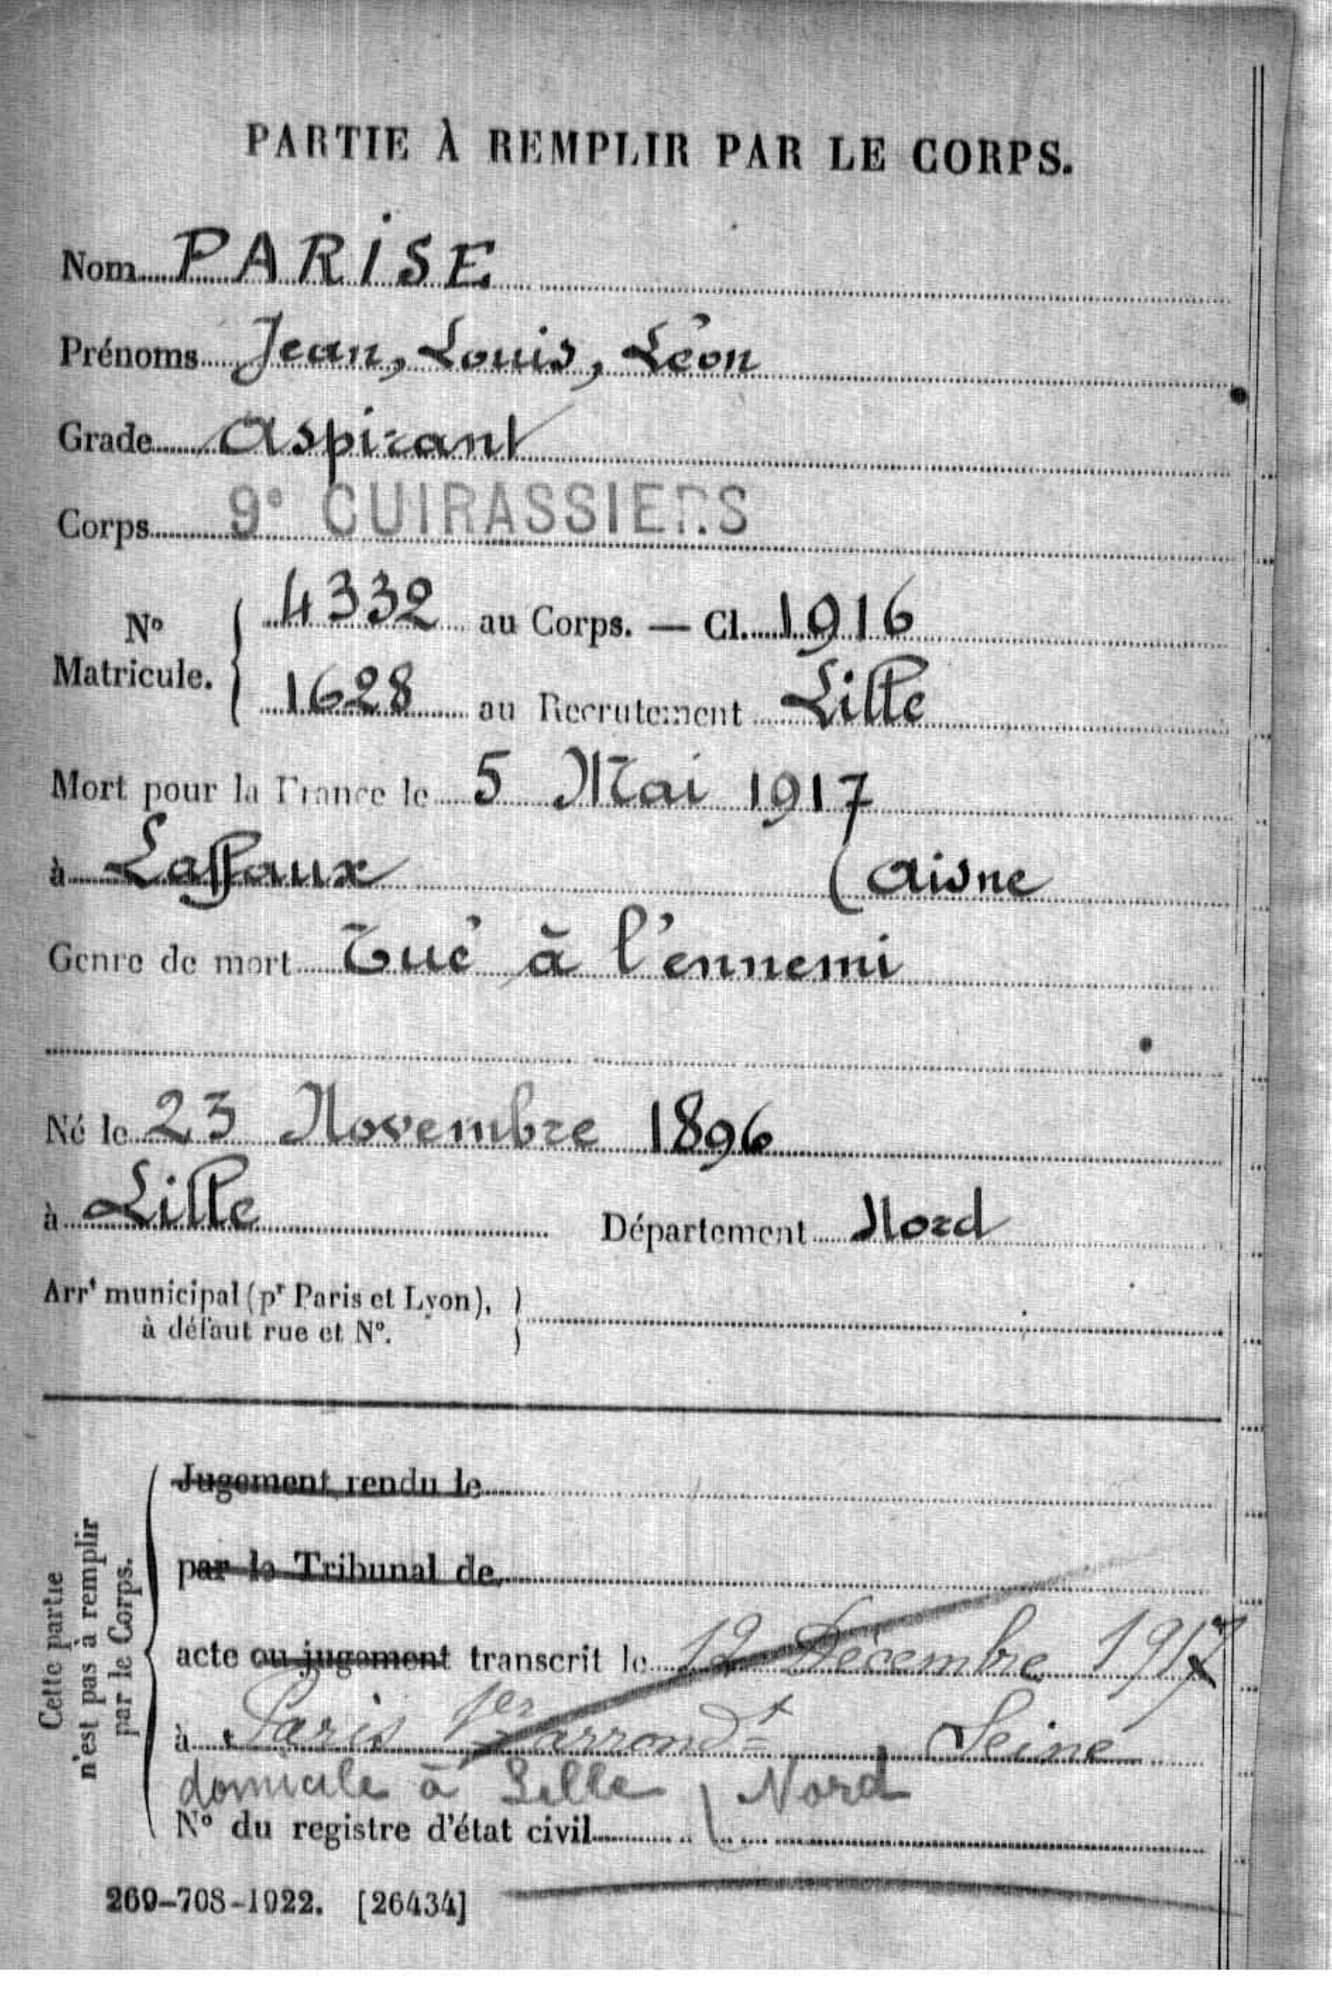 PARTIE À REMPLIR PAR LE CORPS.
Nom PARISE
Prénoms Jean, Louis, Léon
Grade Aspirant
Corps 9e CUIRASSIERS
No Matricule. { 4332 au Corps. — Cl. 1916
1628 au Recrutement Lille
Mort pour la France le 5 Mai 1917
à Laffaux (Aisne
Genre de mort Tué à l'ennemi
Né le 23 Novembre 1896
à Lille Département Nord
Arrt municipal (pr Paris et Lyon), }
à défaut rue et No.
Cette partie
n'est pas à remplir
par le Corps.
Jugement rendu le
par le Tribunal de
acte ou jugement transcrit le 12 Décembre 1917
à Paris 1er arrondt Seine
domicile à Lille (Nord
No du registre d'état civil
269-708-1922. [26434]